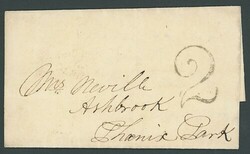 Mrs Neville
Ashbrook
Phœnix Park
2